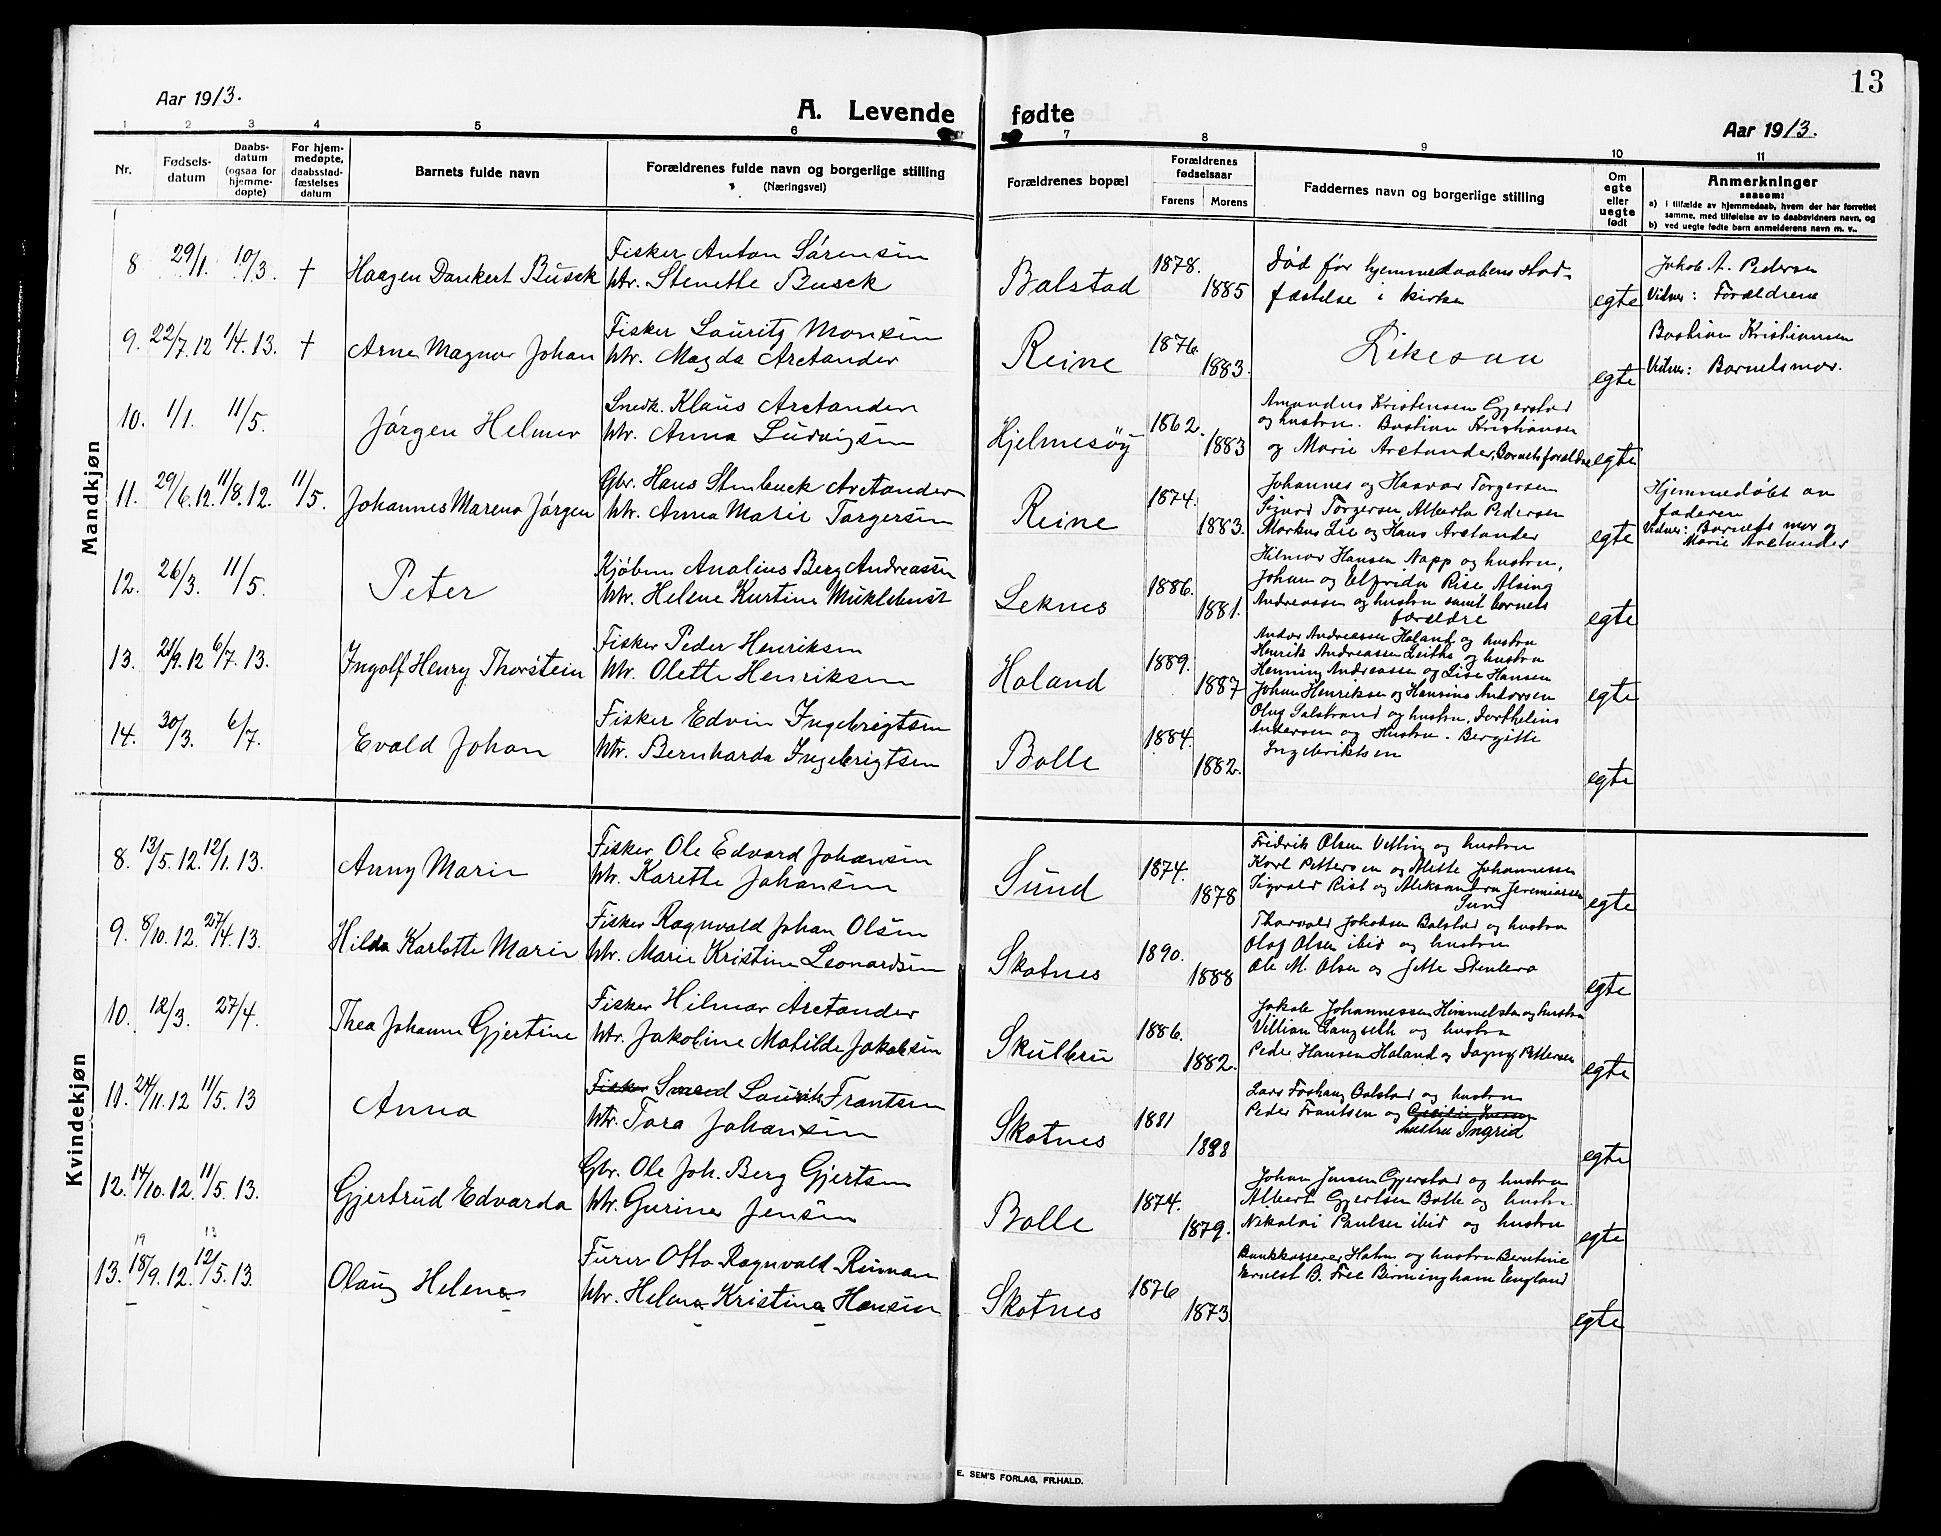 13
Aar 1913.
A. Levende fødte
Aar 1913.
1 2 3 4 5 6 7 8 9 10 11
Nr.
Fødsels-
datum
Daabs-
datum
(ogsaa for
hjemme-
døpte)
For hjem-
medøpte,
daabsstad-
fæstelses
datum
Barnets fulde navn
Forældrenes fulde navn og borgerlige stilling
(Næringsvei)
Forældrenes bopæl
Forældrenes
fødselsaar
Farens Morens
Faddernes navn og borgerlige stilling
Om
egte
eller
uegte
født
Anmerkninger
saasom:
a) i tilfælde av hjemmedaab, hvem der har forrettet
samme, med tilføielse av to daabsvidners navn, og
b) ved uegte fødte barn anmelderens navn m. v..
Mandkjøn
8 29/1. 10/3. † Haagen Dankert Busch
Fisker Anton Sørensen
htr. Stenette Busck
Balstad 1878. 1885
Død før hjemmedaabens stad-
fæstelse i kirke
egte
Jakob A. Pedersen
Vidner: Forældrene
9. 22/7. 12 1/4. 13. † Arne Magnor Johan
Fisker Lauritz Monsen
htr. Magda Arctander
Reine 1876. 1883.
Likesaa
egte
Bastian Kristiansen
Vidner: Barnets mor.
10. 1/1. 11/5. Jørgen Helmer
Snedk. Klaus Arctander
htr. Anna Ludvigsen
Hjelmesøy 1862. 1883
Amandus Kristensen Gjerstad
og hustru. Bastian Kristiansen
og Marie Arctander, Barnets forældre
egte
11. 29/6. 12. 11/8. 12. 11/5. Johannes Mareno Jørgen
Gbr. Hans Stenbuck Arctander
htr. Anna Marie Torgersen
Reine 1874. 1883.
Johannes og Haavar Torgersen
Sigurd Torgersen, Alberta Pedersen
Markus Lie og Hans Arctander
egte
Hjemmedøbt av
faderen
Vidner: Barnets mor og
Marie Arctander
12. 26/3. 11/5. Peter
Kjøbm Analius Berg Andreassen
htr. Helene Kurtine Mûklebust
Leknes 1886. 1881.
Hilmar Hansen Napp og hustru,
Johan og Elfrida Rise, Alsing
Andreassen og hustru samt barnets
forældre
egte
13. 21/9. 12 6/7. 13. Ingolf Henry Thorstein
Fisker Peder Henriksen
htr. Olette Henriksen
Holand 1889. 1887
Andor Andreassen Holand og hustru
Henrik Andreassen Leithe og hustru
Henning Andreassen og Lise Hansen
Johan Henriksen og Hansine Andersen
egte
14. 30/3. 6/7. Evald Johan
Fisker Edvin Ingebrigtsen
htr. Bernharda Ingebrigtsen
Bolle 1884. 1882.
Oluf Salstrand og hustru, Dorthelius
Andersen og Hustru. Bergitte
Ingebriktsen
egte
Kvindekjøn
8. 13/5. 12. 12/1. 13. Anny Marie
Fisker Ole Edvard Johansen
htr. Karette Johansen
Sund 1874. 1878
Fredrik Olsen Vetting og hustru
Karl Pettersen og Mette Johannessen
Sigvald Rist og Aleksandra Jeremiassen
Sund
egte
9. 8/10. 12. 27/4. 13. Hilda Karlotte Marie
Fisker Ragnvald Johan Olsen
htr. Marie Kristine Leonardsen
Skotnes 1890. 1888
Thorvald Jakobsen Balstad og hustru
Olaf Olsen ibid og hustru
Ole M. Olsen og Jette Stenbro
egte
10. 12/3. 27/4. Thea Johanne Gjertine
Fisker Hilmar Arctander
htr. Jakoline Matilde Jakobsen
Skulbru 1886. 1882.
Jakob Johannessen Himmelstein og hustru
Villian Langseth og hustru
Peder Hansen Holand og Dagny Pettersen
egte
11. 24/11. 12 11/5. 13 Anna
Fisker Smed Laurits Frantsen
htr. Tora Johansen
Skotnes 1881 1888
Lars Foshaug Balstad og hustru
Peder Frantsen og
hustru Ingrid
egte
12. 14/10. 12. 11/5. 13. Gjertrud Edvarda
Gbr. Ole Joh. Berg Gjertsen
htr. Gurine Jensen
Bolle 1874. 1879.
Johan Jensen Gjerstad og hustru
Albert Gjertsen Bolle og hustru
Nikolai Paulsen ibid og hustru
egte
19 13
13. 18/9. 12. 12/5. 13. Olaug Helene
Furer Otto Ragnvald Ruman
htr. Helena Kristina Hansen
Skotnes 1876 1873.
Bankkasserer Hahn og hustru Berntine
Ernest B. Free Birmingham England
egte
E. SEM'S FORLAG, FR.HALD.